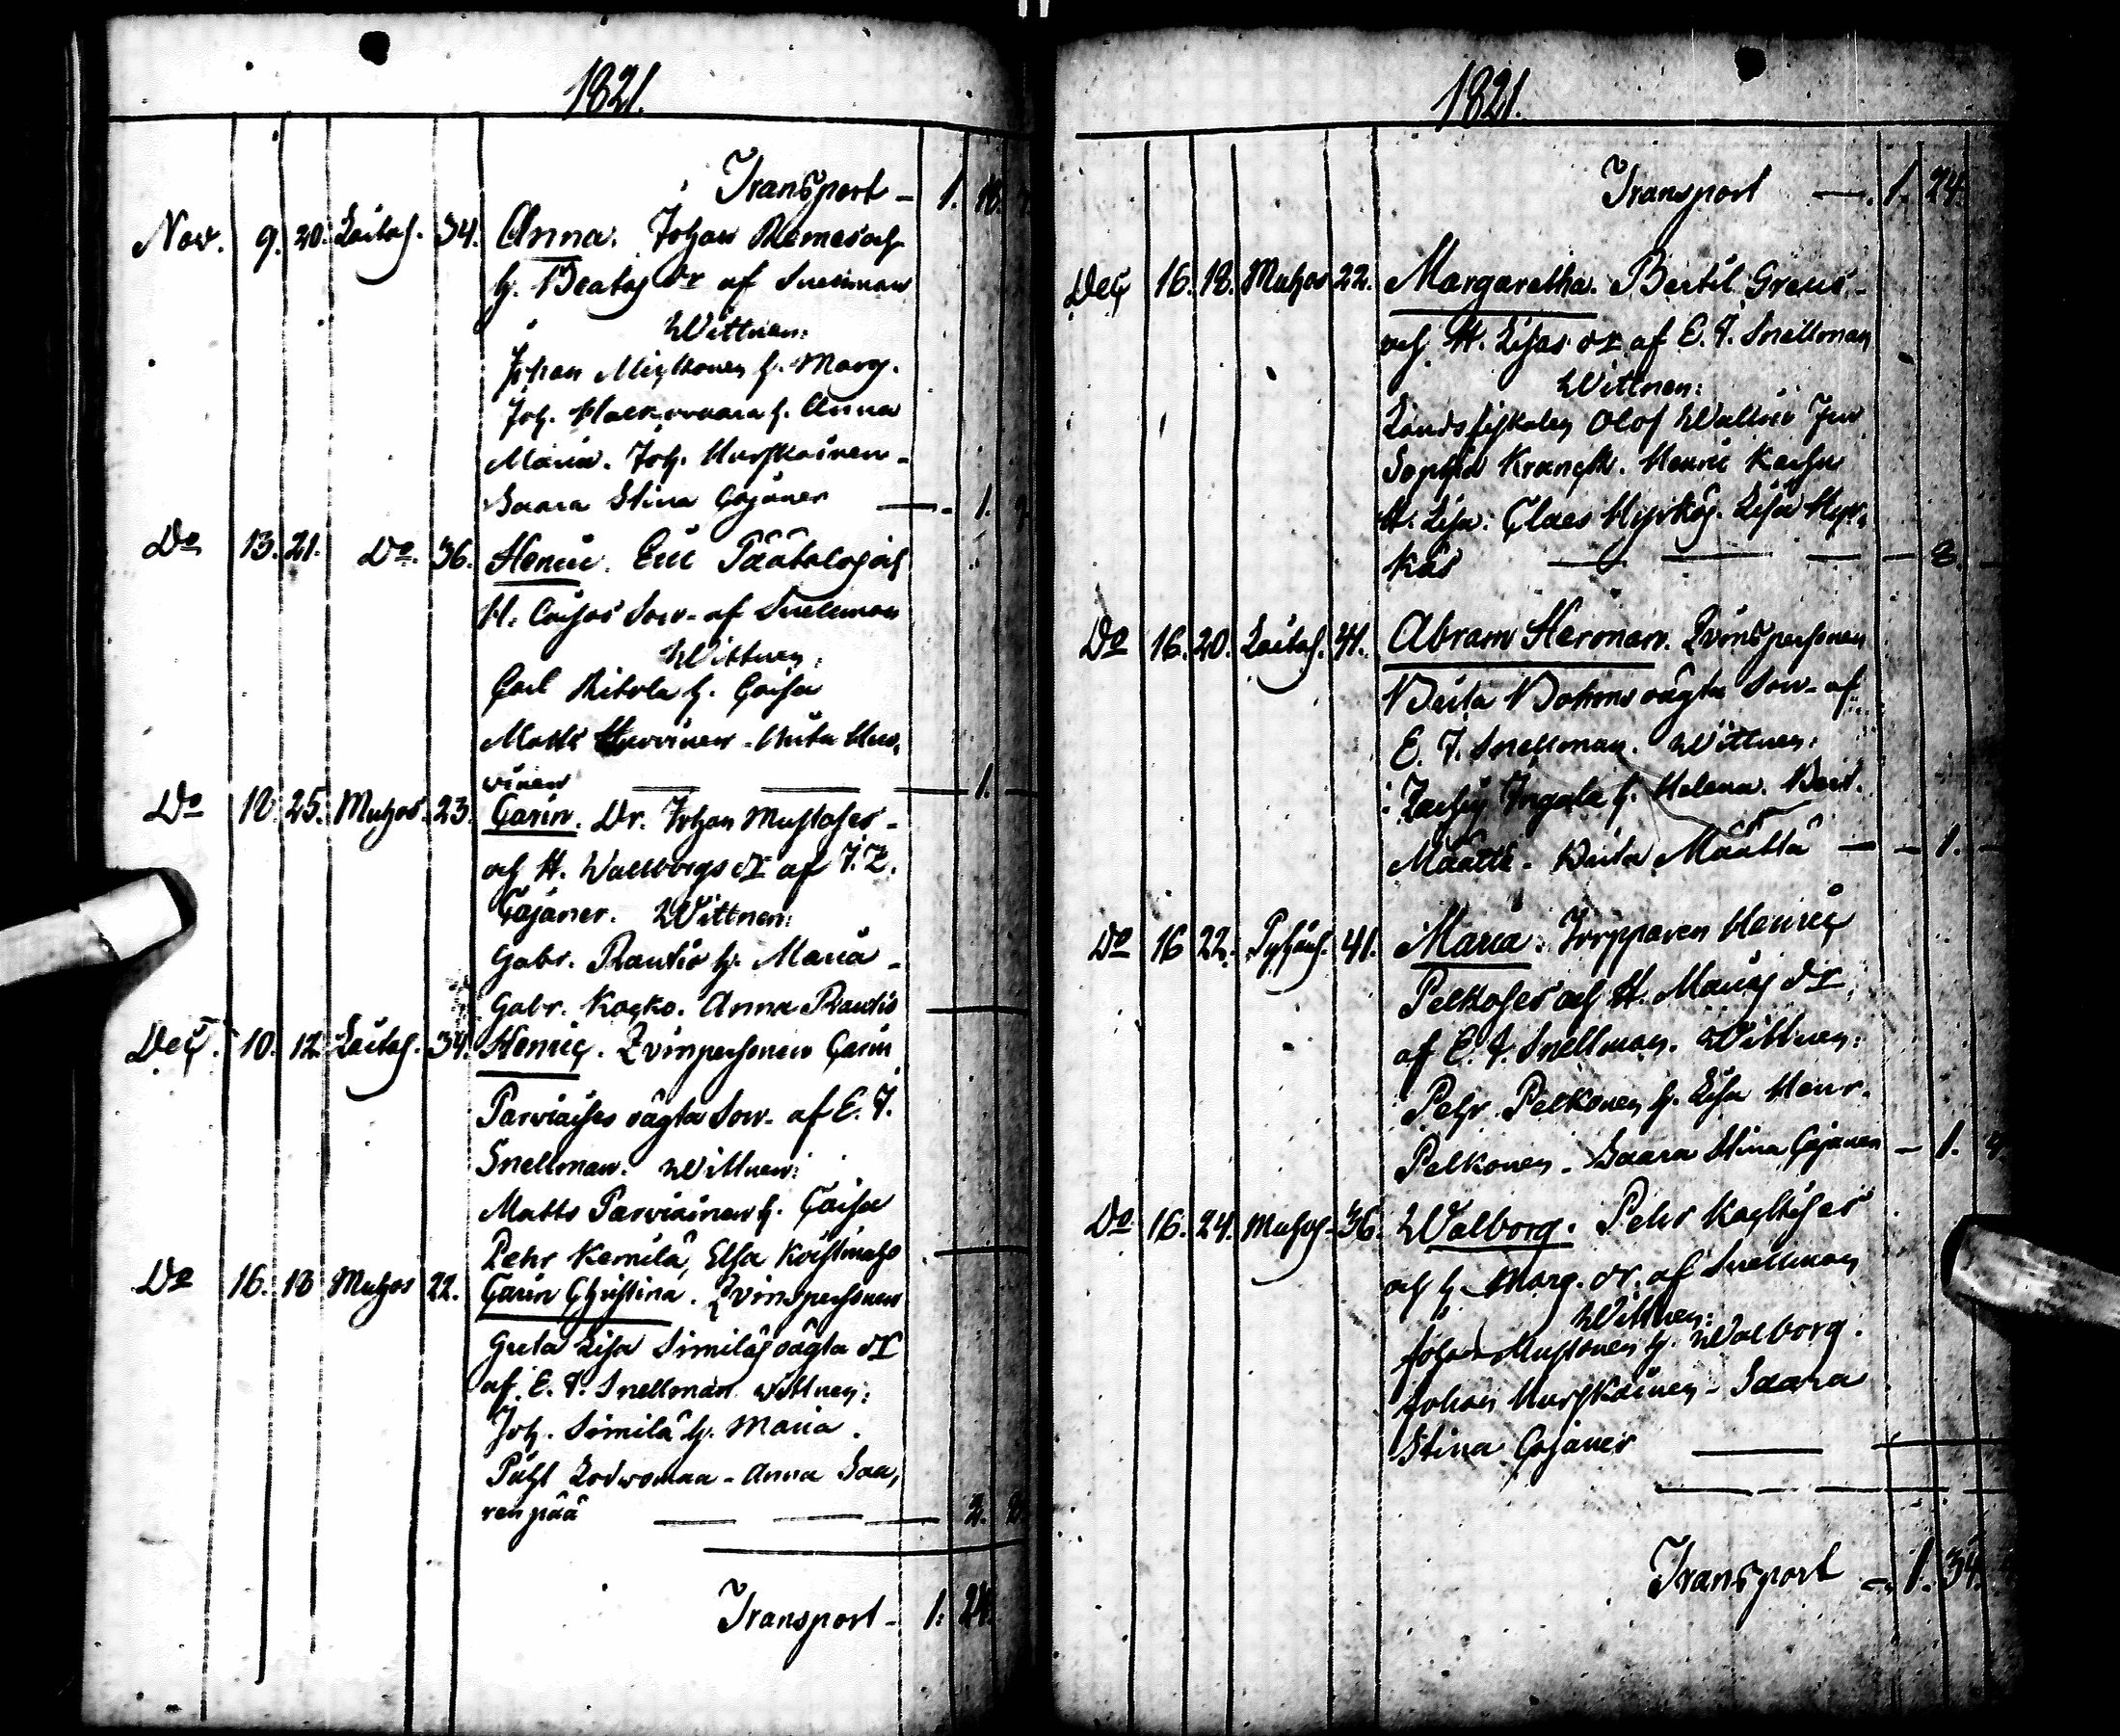 1821.
Transport - 1. 18.
Nov. 9. 20. Laitas. 34. Anna. Johan Remes och
h. Beatas dr af Snellman
Wittnen:
Johan h. Marg.
Joh. h. Anna
Maria. Joh. Hurskainen -
Saara Stina Cajaner - 1.
Do 13. 21. Do. 36. Henric. Eric Päätalos och
H. Caisas Son - af Snellman
Wittnen:
Carl Ritola h. Caisa
Matts Hu-
vinen 1.
Do 18. 25. Muhos. 23. Carin. Dr. Johan Mustoses -
och H. Wallborgs dr af J. Z.
Cajaner. Wittnen:
Gabr. Rautio h. Maria -
Gabr. Anna Rautio
Dec. 10. 12. Laitas. 34. Henric. Qvinspersonen Carin
Parviaises oägta Son - af E. J.
Snellman. Wittnen:
Matts Parviainen h. Caisa
Pehr Kemilä, Elsa
Do 16. 18 Muhos 22. Carin Christina. Qvinspersonen
Greta Lisa Similäs oägta dr
af E. J. Snellman Wittnen:
Joh. Similä h. Maria.
Anna Saa,
ren pää 2.
Transport - 1. 24.
1821.
Transport - 1. 24.
Dec 16. 18. Muhos 22. Margaretha. Bertil Greus -
och H. Lisas dr af E. J. Snellman
Wittnen:
Landsfiskalen Olof
Sophia Henric
H. Lisa. Claes Hyrkäs. Lisa Hyr,
käs
Do 16. 20. Laitas. 41. Abram Herman. Qvinspersonen
Brita oägta Son - af
E. J. Snellman. Wittnen:
h. Helena.
Määttä. Brita Määttä - - 1. -
Do 16 22. Pyhäns. 41. Maria. Henric
Pelkoses och H. Marias dr
af E. J. Snellman. Wittnen:
Pehr Pelkonen h. Lisa Henr.
Pelkonen - Saara Stina Cajaner - 1.
Do 16. 24. Muhos - 36. Walborg. Pehr
och h. Marg. dr. af Snellman
Wittnen:
Johan Mustonen h. Walborg.
Johan Hurskainen - Saara
Stina Cajaner
Transport - 1. 34.